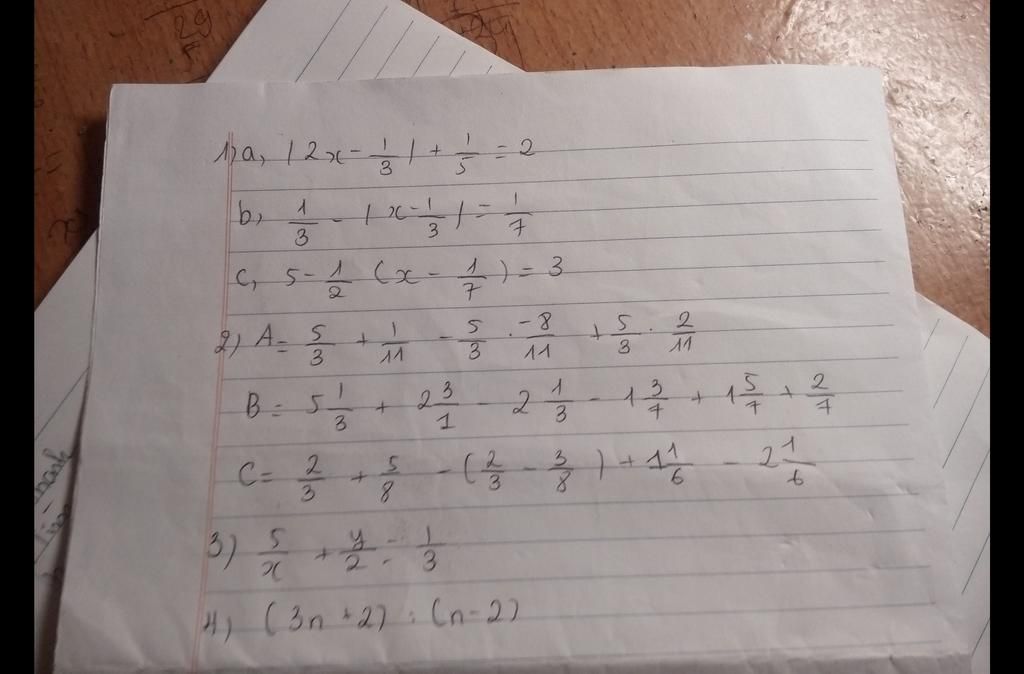 29
29
1) a, |2x - 1/3| + 1/5 = 2
b, 1/3 - |x - 1/3| = 1/7
c, 5 - 1/2 (x - 1/7) = 3
2) A = 5/3 + 1/11 - 5/3 . -8/11 + 5/3 . 2/11
B = 5 1/3 + 2 3/1 - 2 1/3 - 1 3/7 + 1 5/7 + 2/7
C = 2/3 + 5/8 - (2/3 - 3/8) + 1 1/6 - 2 1/6
3) 5/x + y/2 = 1/3
4) (3n + 2) : (n - 2)